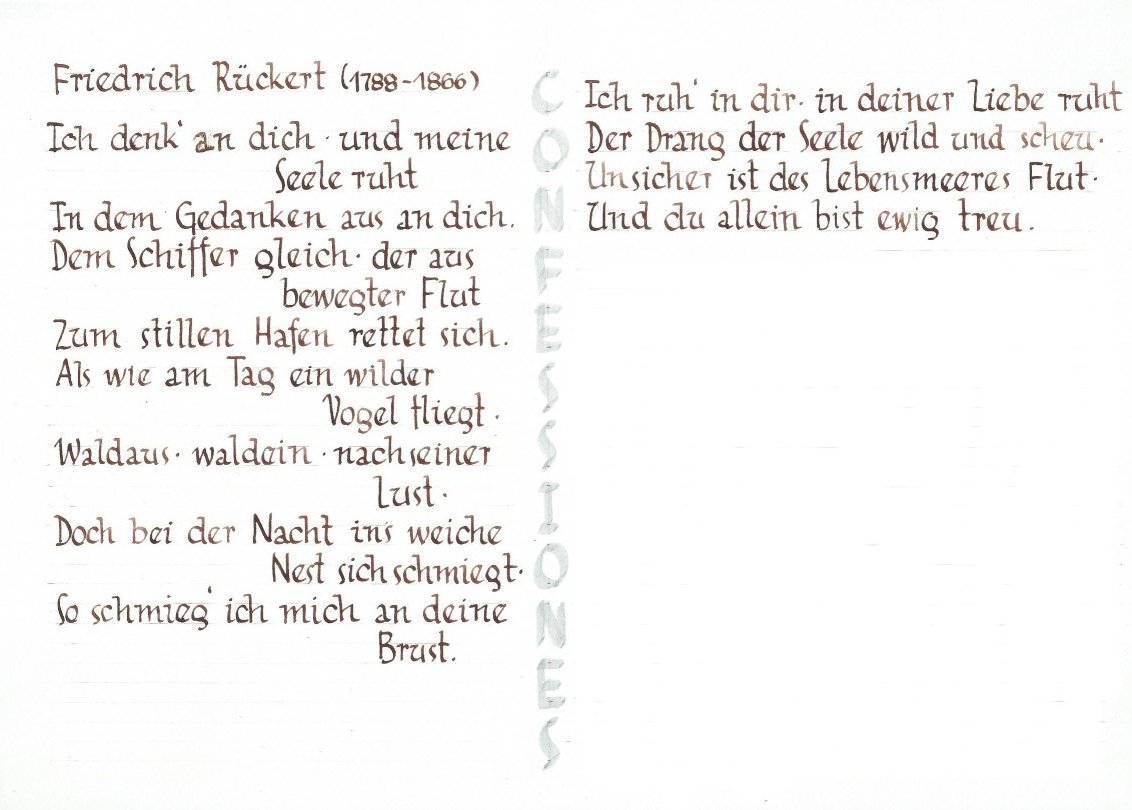 Friedrich Rückert (1788-1866)
Ich denk' an dich · und meine
Seele ruht
In dem Gedanken aus an dich.
Dem Schiffer gleich · der aus
bewegter Flut
Zum stillen Hafen rettet sich.
Als wie am Tag ein wilder
Vogel fliegt ·
Waldaus · waldein · nach seiner
Lust ·
Doch bei der Nacht ins weiche
Nest sich schmiegt ·
So schmieg' ich mich an deine
Brust.
CONFESSIONES
Ich ruh' in dir · in deiner Liebe ruht
Der Drang der Seele wild und scheu ·
Unsicher ist des Lebensmeeres Flut ·
Und du allein bist ewig treu.